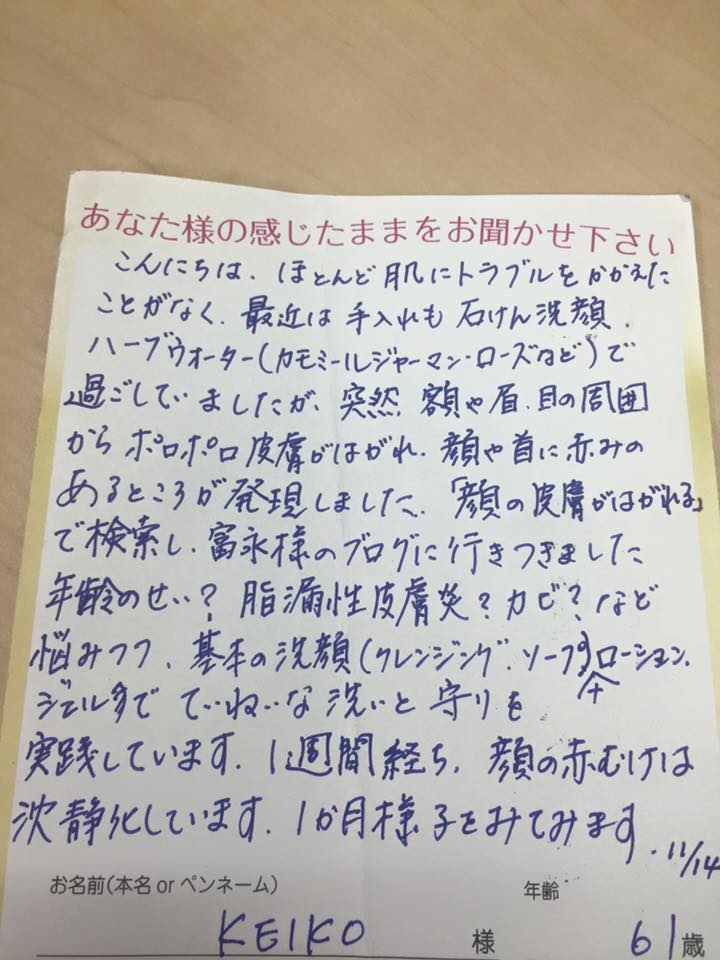 あなた様の感じたままをお聞かせ下さい
こんにちは、ほとんど肌にトラブルをかかえた
ことがなく、最近は手入れも石けん洗顔、
ハーブウォーター(カモミールジャーマン・ローズなど)で
過ごしていましたが、突然、額や眉、目の周囲
からポロポロ皮膚がはがれ、顔や首に赤みの
あるところが発現しました、「顔の皮膚がはがれる」
で検索し、富永様のブログに行きつきました
年齢のせい?脂漏性皮膚炎?カビ?など
悩みつつ、基本の洗顔(クレンジング、ソープ)ローション、
ジェル
でていねいな洗いと守りを
実践しています、1週間経ち、顔の赤むけは
沈静化しています、1か月様子をみてみます
.11/14
お名前(本名orペンネーム)
年齢
KEIKO 様 61歳